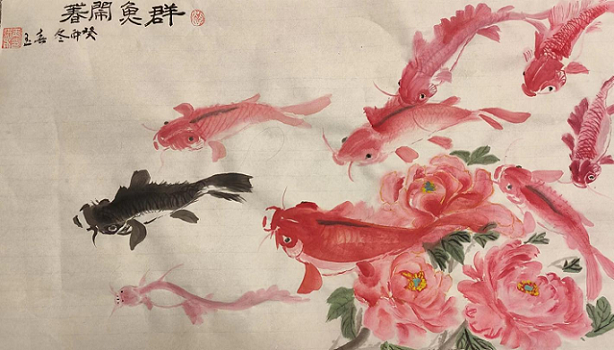 群魚鬧春
癸卯冬喜